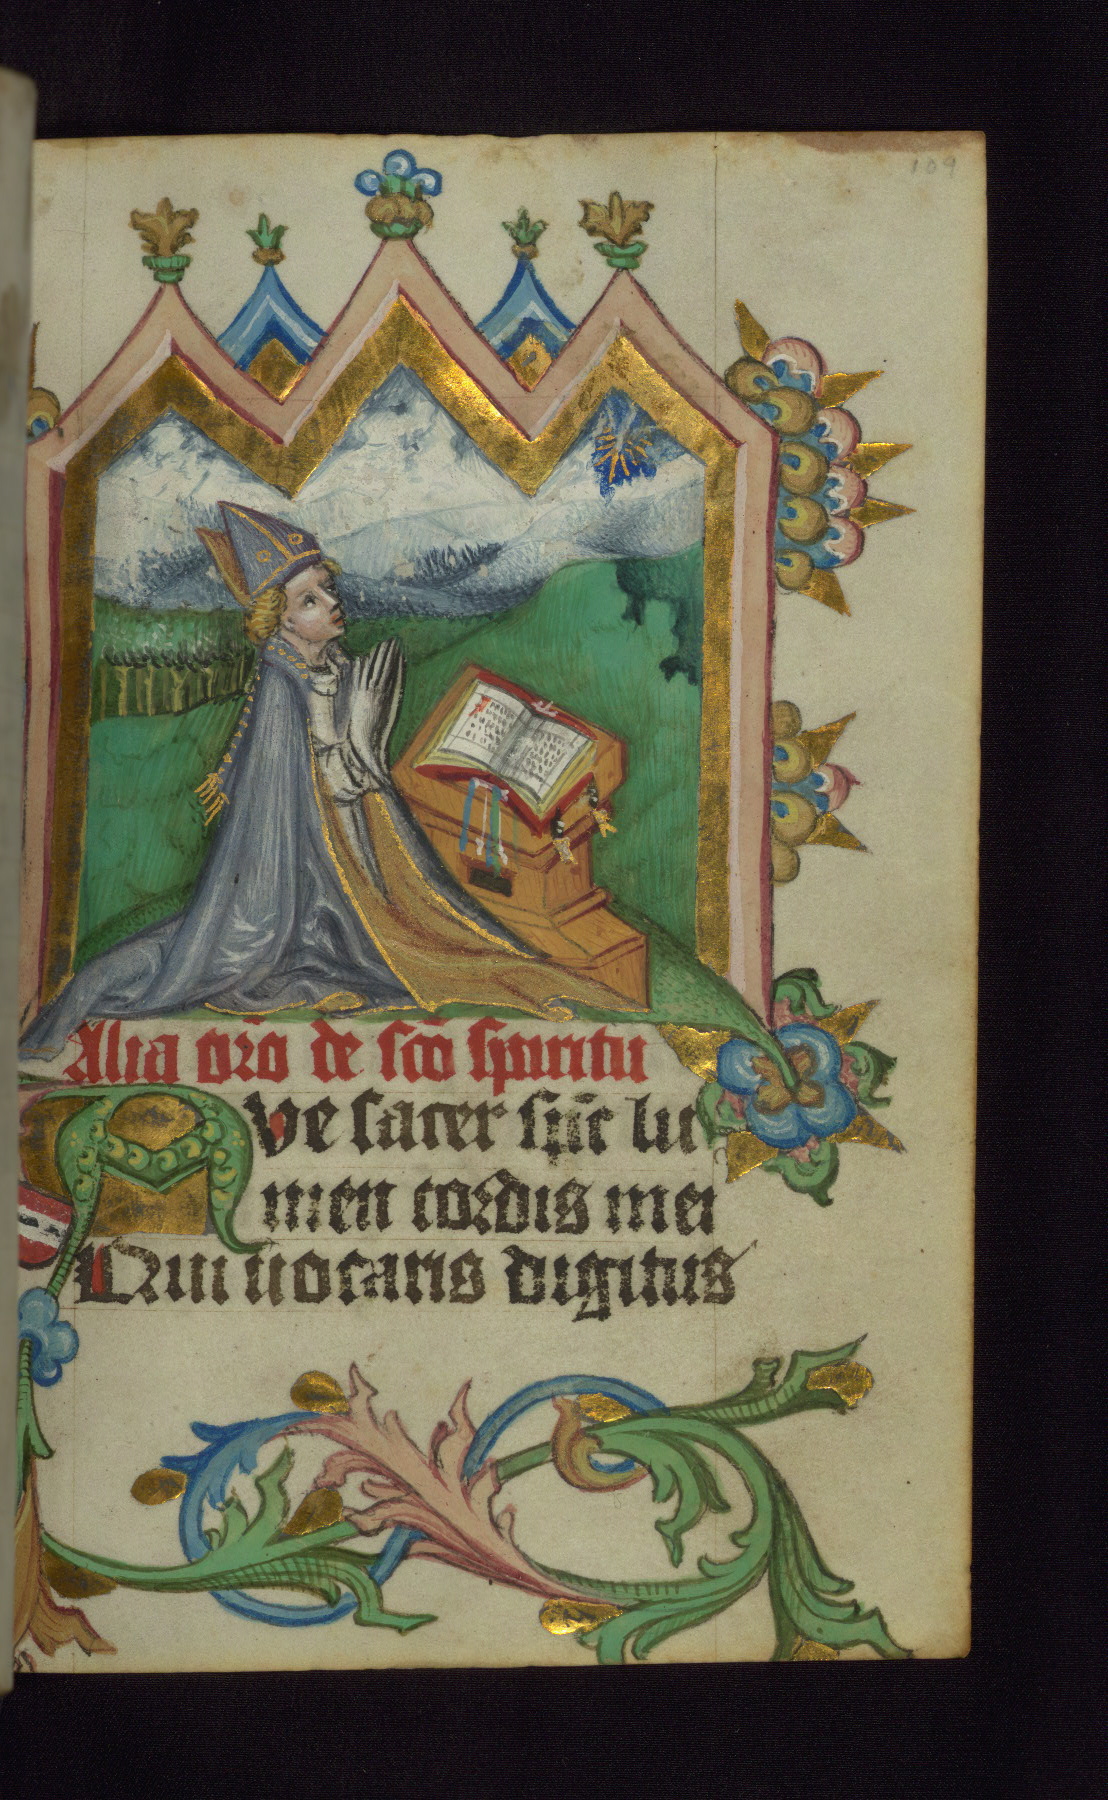 109
Alia orō de sco̅ spiritu
Ave sacer sp̅c lu
men cordis mei
Qui uocaris digitus